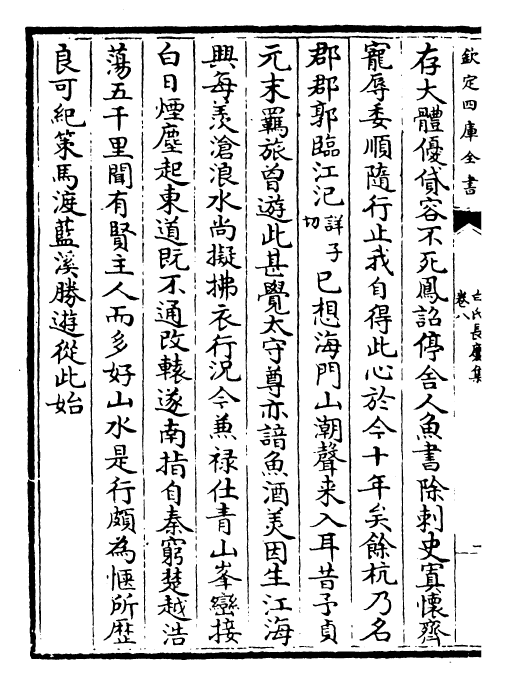 欽定四庫全書
白氏長慶集
卷八
一
存大體優貸容不死鳳詔停舍人魚書除刺史寘懷齊
寵辱委順隨行止我自得此心於今十年矣餘杭乃名
郡郡郭臨江汜詳子切已想海門山潮聲来入耳昔予貞
元末羈旅曾遊此甚覺太守尊亦諳魚酒美因生江海
興每羨滄浪水尚擬拂衣行況今兼禄仕青山峯巒接
白日煙塵起東道既不通改轅遂南指自秦窮楚越浩
蕩五千里聞有賢主人而多好山水是行頗為愜所歴
良可紀策馬渡藍溪勝遊從此始